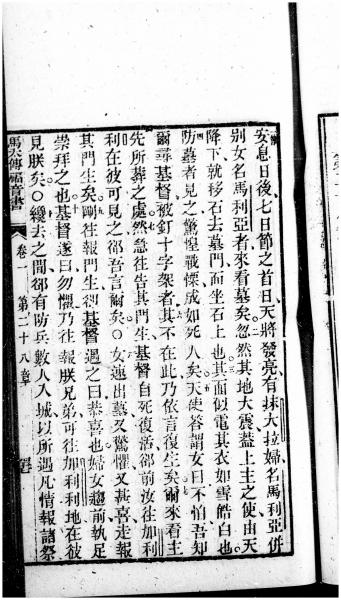 安息日後、七日節之首日天將發亮有抹大拉婦名馬利亞併
別女名馬利亞者來看墓矣忽然其地大震蓋上主之使由天
降下就移石去墓門而坐石上也其面似電其衣如雪皓白也
防墓者見之驚惶戰慄成如死人矣天使答謂女曰不怕吾知
爾尋基督被釘十字架者其不在此乃依言復生矣爾來看主
先所葬之處然急往告其門生基督自死復活郤前汝往加利
利在彼可見之郤吾言爾矣○女速出墓又驚懼又甚喜走報
其門生矣剛往報門生卻基督遇之曰恭喜也婦女趨前執足
崇拜之也基督遂曰勿懼乃往報朕兄弟可往加利利地在彼
見朕矣○纔去之間郤有防兵數人入城以所遇凡情報諸祭
馬太傳福音書 卷一 第二十八章